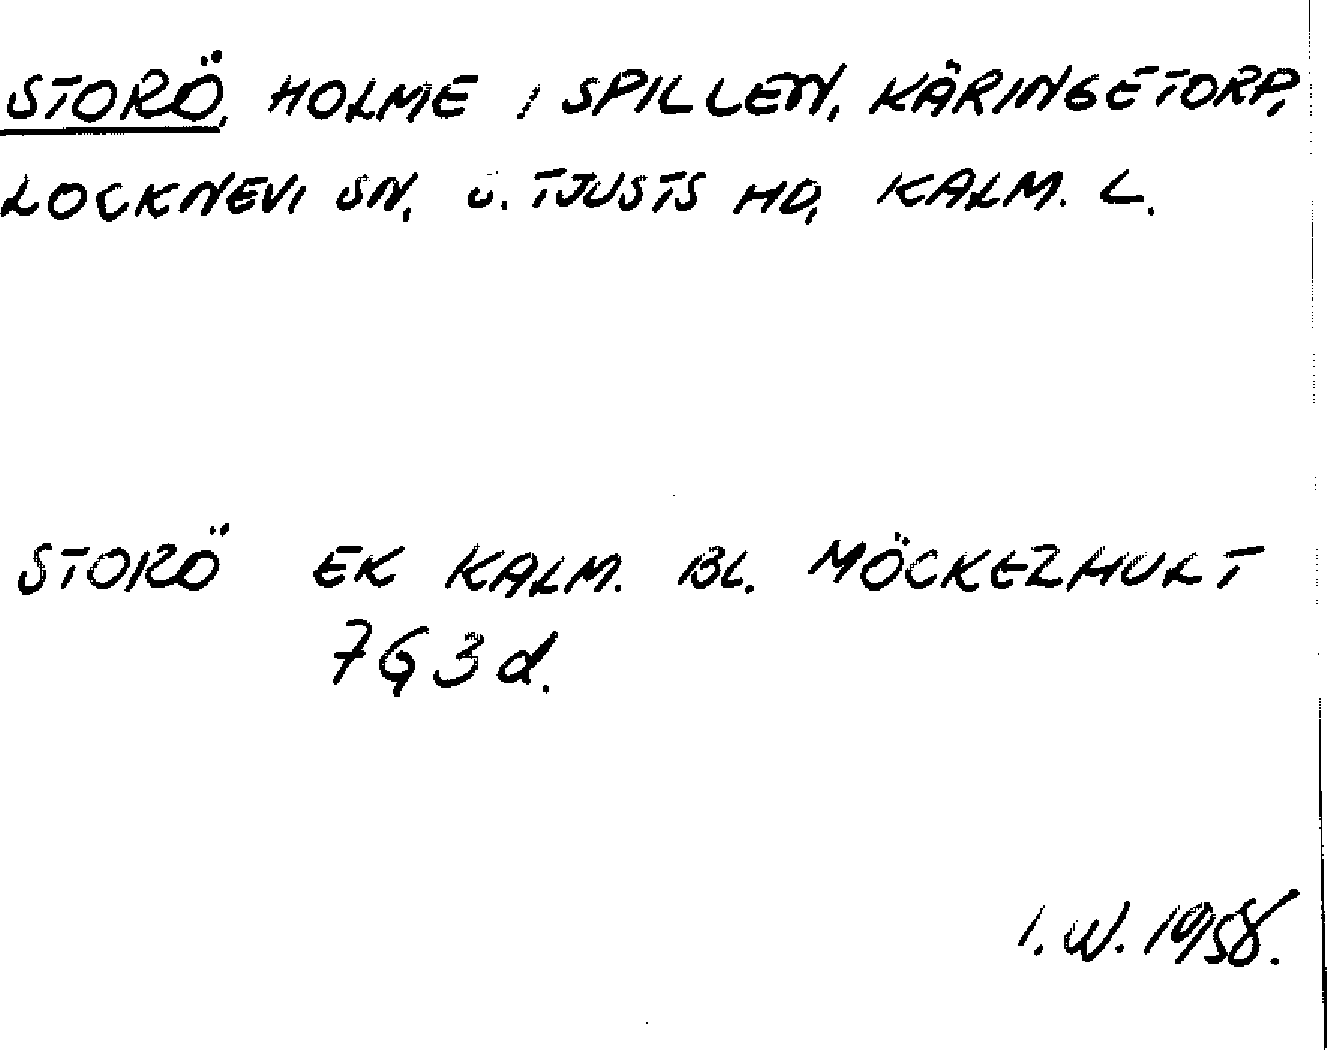 STORÖ, HOLME I SPILLEN, KÄRINGETORP,
LOCKNEVI SN, S. TJUSTS HD, KALM. L.
STORÖ EK KALM. BL. MÖCKERHULT
7G3d.
I.W. 1958.